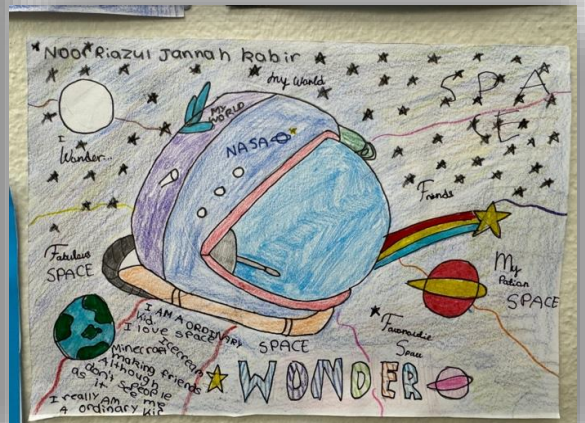 Noor Riazul Jannah Kabir
my World
SPA
CE
I
Wonder...
MY
WORLD
NASA
Friends
Fabulous
SPACE
My
Patian
SPACE
Favoraidie
Space
I AM A ORDINARY
Kid
I love space
Icecream
Minecraft
making friends
Although
don't people
as it see me
I really AM
A ordinary Kid
SPACE
WONDER